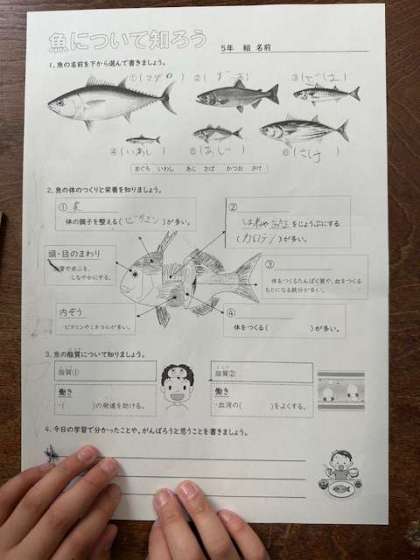 魚について知ろう
5年　組　名前
1. 魚の名前を下から選んで書きましょう。
①(マグロ)　②(　　)　③(さば)
④(いわし)　⑤(あじ)　⑥(さけ)
まぐろ　いわし　あじ　さば　かつお　さけ
2. 魚の体のつくりと栄養を知りましょう。
①
体の調子を整える(ビタミン)が多い。
②
をじょうぶにする
(カルシウム)が多い。
頭・目のまわり
しなやかにする。
③
体をつくるたんぱく質や、血をつくる
もとになる鉄分が多い。
内ぞう
ビタミンやミネラルが多い。
④
体をつくる(　　)が多い。
3. 魚の脂質について知りましょう。
脂質①
働き
・(　　)の発達を助ける。
脂質②
働き
・血液の(　　)をよくする。
4. 今日の学習で分かったことや、がんばろうと思うことを書きましょう。